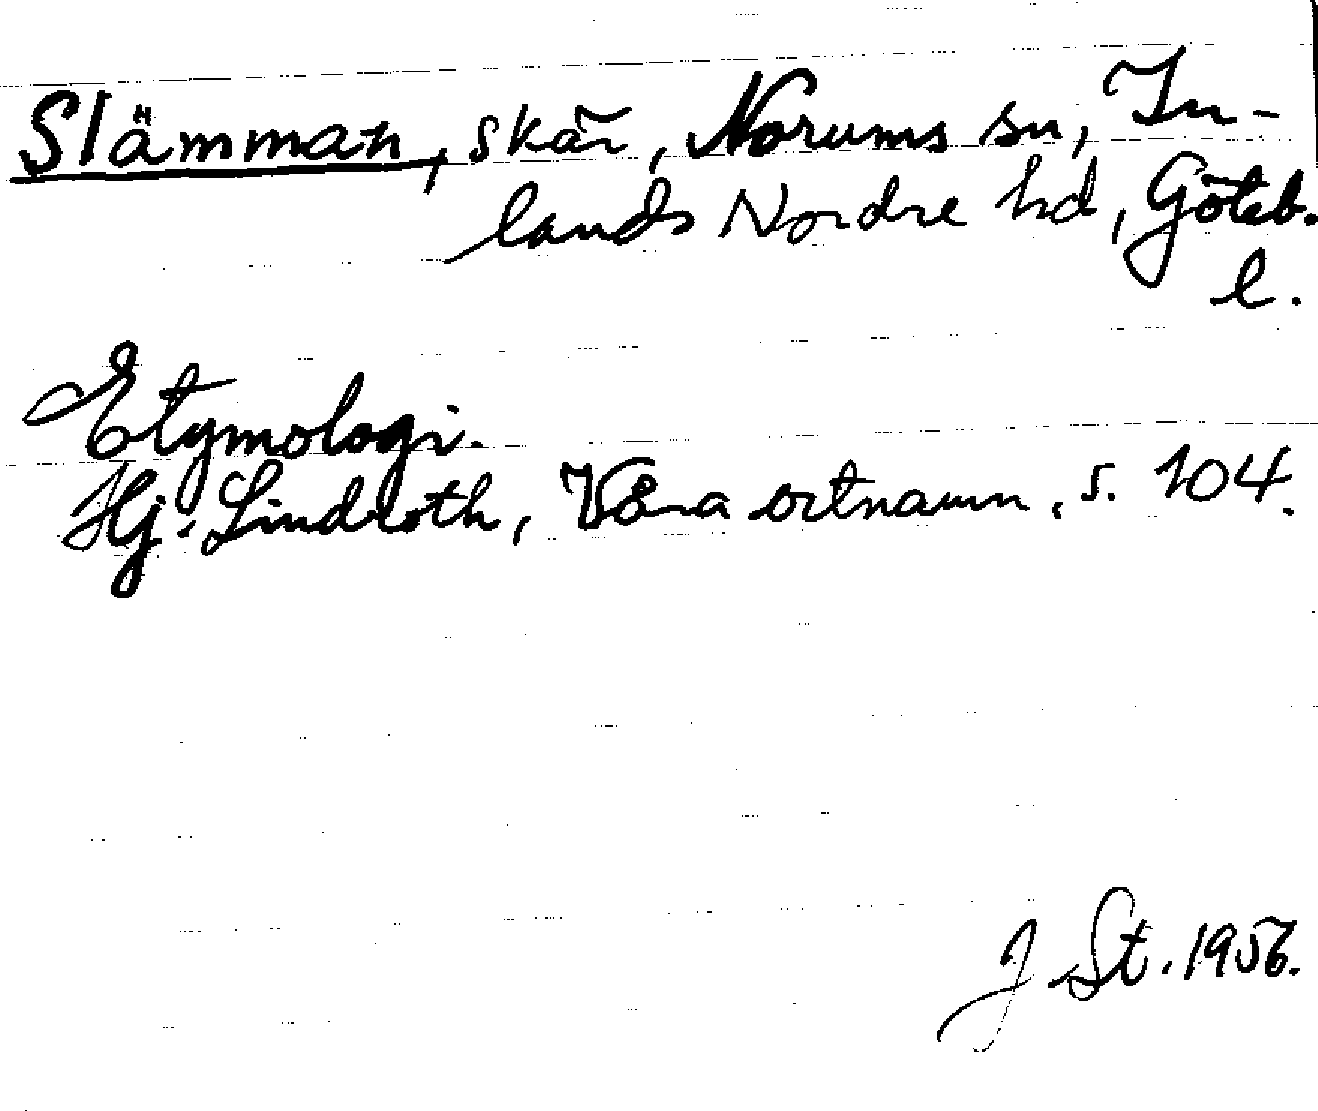 Slämman, skär, Norums sn, In-
lands Nordre hd, Göteb.
l.
Etymologi.
Hj. Lindroth, Våra ortnamn, s. 104.
J St. 1956.